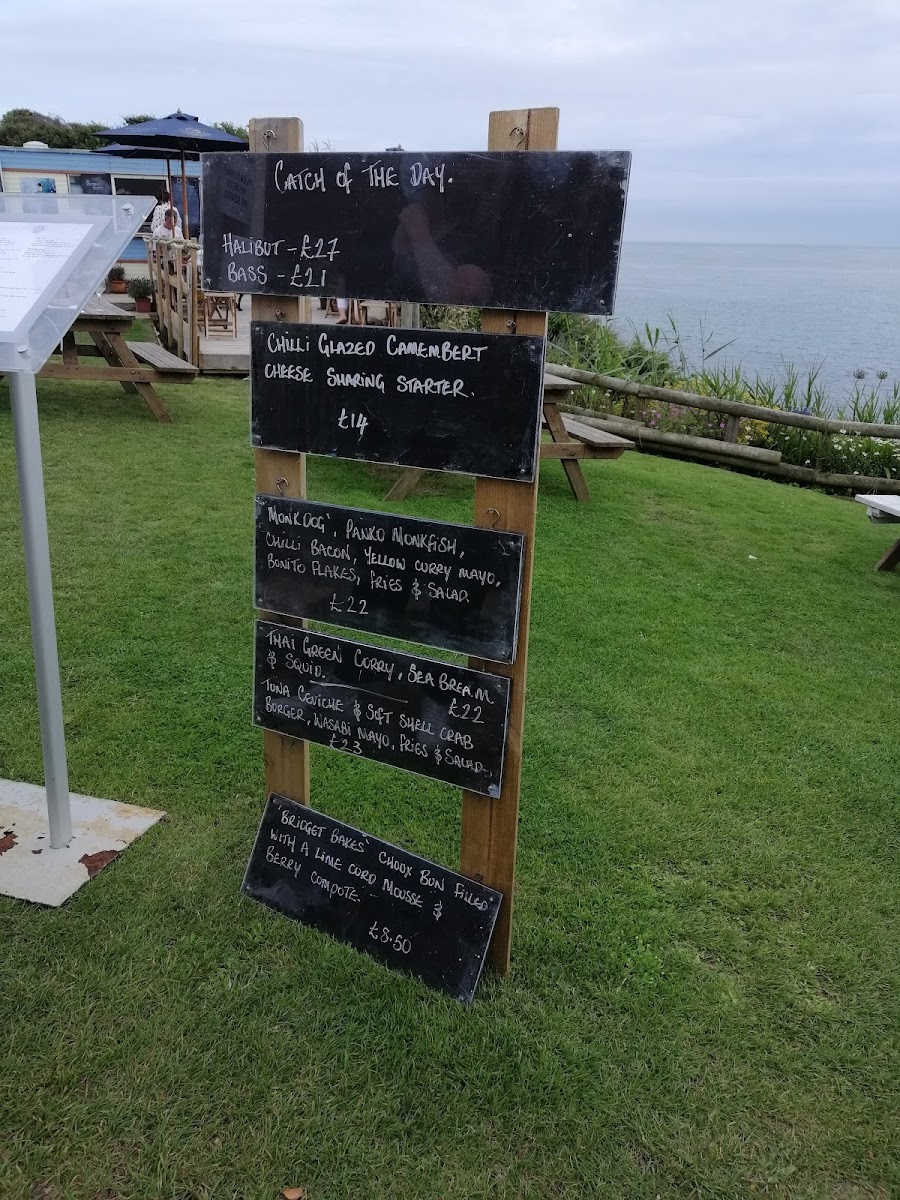 CATCH of THE DAY.
HALIBUT - £27
BASS - £21
CHILLI GLAZED CAMEMBERT
CHEESE SHARING STARTER.
£14
'MONKDOG', PANKO MONKFISH,
CHILLI BACON, YELLOW CURRY MAYO,
BONITO FLAKES, FRIES & SALAD.
£22
THAI GREEN CURRY, SEA BREAM
& SQUID.
£22
TUNA CEVICHE & SOFT SHELL CRAB
BURGER, WASABI MAYO, FRIES & SALAD.
£23
'BRIDGET BAKES' CHOUX BUN FILLED
WITH A LIME CURD MOUSSE &
BERRY COMPOTE.
£8.50